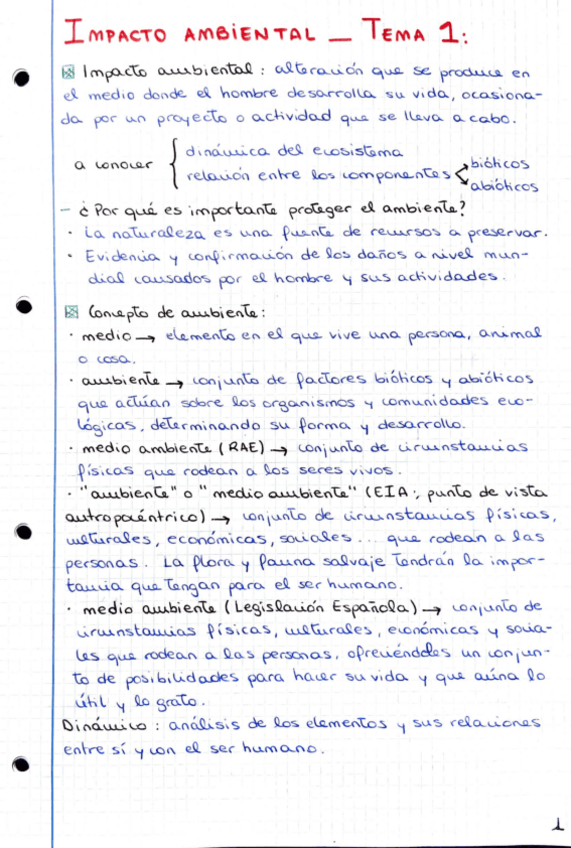 IMPACTO AMBIENTAL _ TEMA 1:
Impacto ambiental: alteración que se produce en
el medio donde el hombre desarrolla su vida, ocasiona-
da por un proyecto o actividad que se lleva a cabo.
a conocer { dinámica del ecosistema
relación entre los componentes < bióticos
abióticos
- ¿Por qué es importante proteger el ambiente?
· La naturaleza es una fuente de recursos a preservar.
· Evidencia y confirmación de los daños a nivel mun-
dial causados por el hombre y sus actividades.
Concepto de ambiente:
· medio → elemento en el que vive una persona, animal
o cosa.
· ambiente → conjunto de factores bióticos y abióticos
que actúan sobre los organismos y comunidades eco-
lógicas, determinando su forma y desarrollo.
· medio ambiente (RAE) → conjunto de circunstancias
físicas que rodean a los seres vivos.
· "ambiente" o "medio ambiente" (EIA; punto de vista
autropocéntrico) → conjunto de circunstancias físicas,
culturales, económicas, sociales... que rodean a las
personas. La flora y fauna salvaje tendrán la impor-
tancia que tengan para el ser humano.
· medio ambiente (Legislación Española) → conjunto de
circunstancias físicas, culturales, económicas y socia-
les que rodean a las personas, ofreciéndoles un conjun-
to de posibilidades para hacer su vida y que aúna lo
útil y lo grato.
Dinámico: análisis de los elementos y sus relaciones
entre sí y con el ser humano.
1